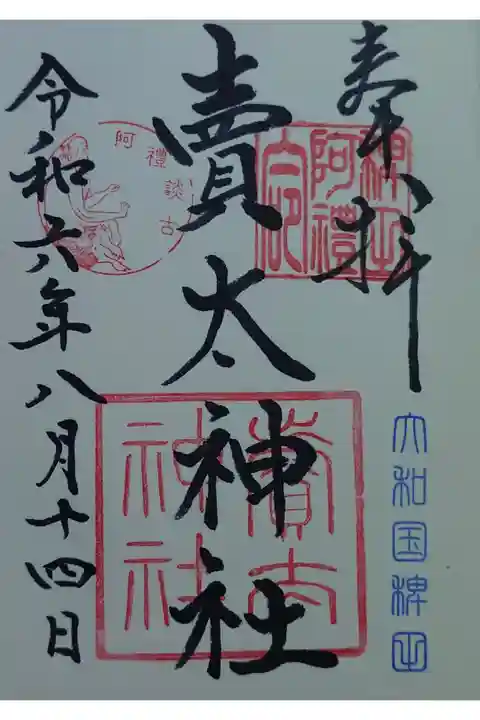 奉拝
稗田
阿禮
大和国稗田
賣太神社
賣太
神社
阿禮談古
令和六年八月十四日